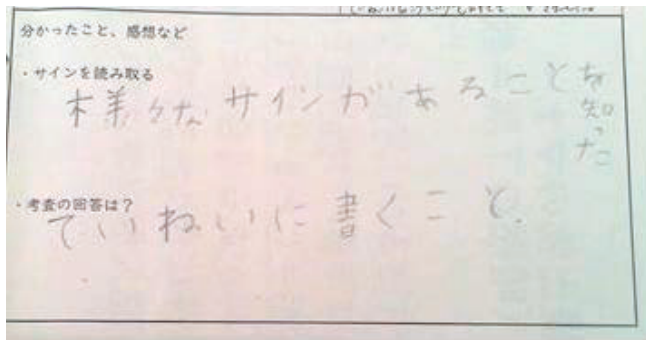 分かったこと、感想など
・サインを読み取る
様々なサインがあることを知った
・考査の回答は？
ていねいに書くこと.